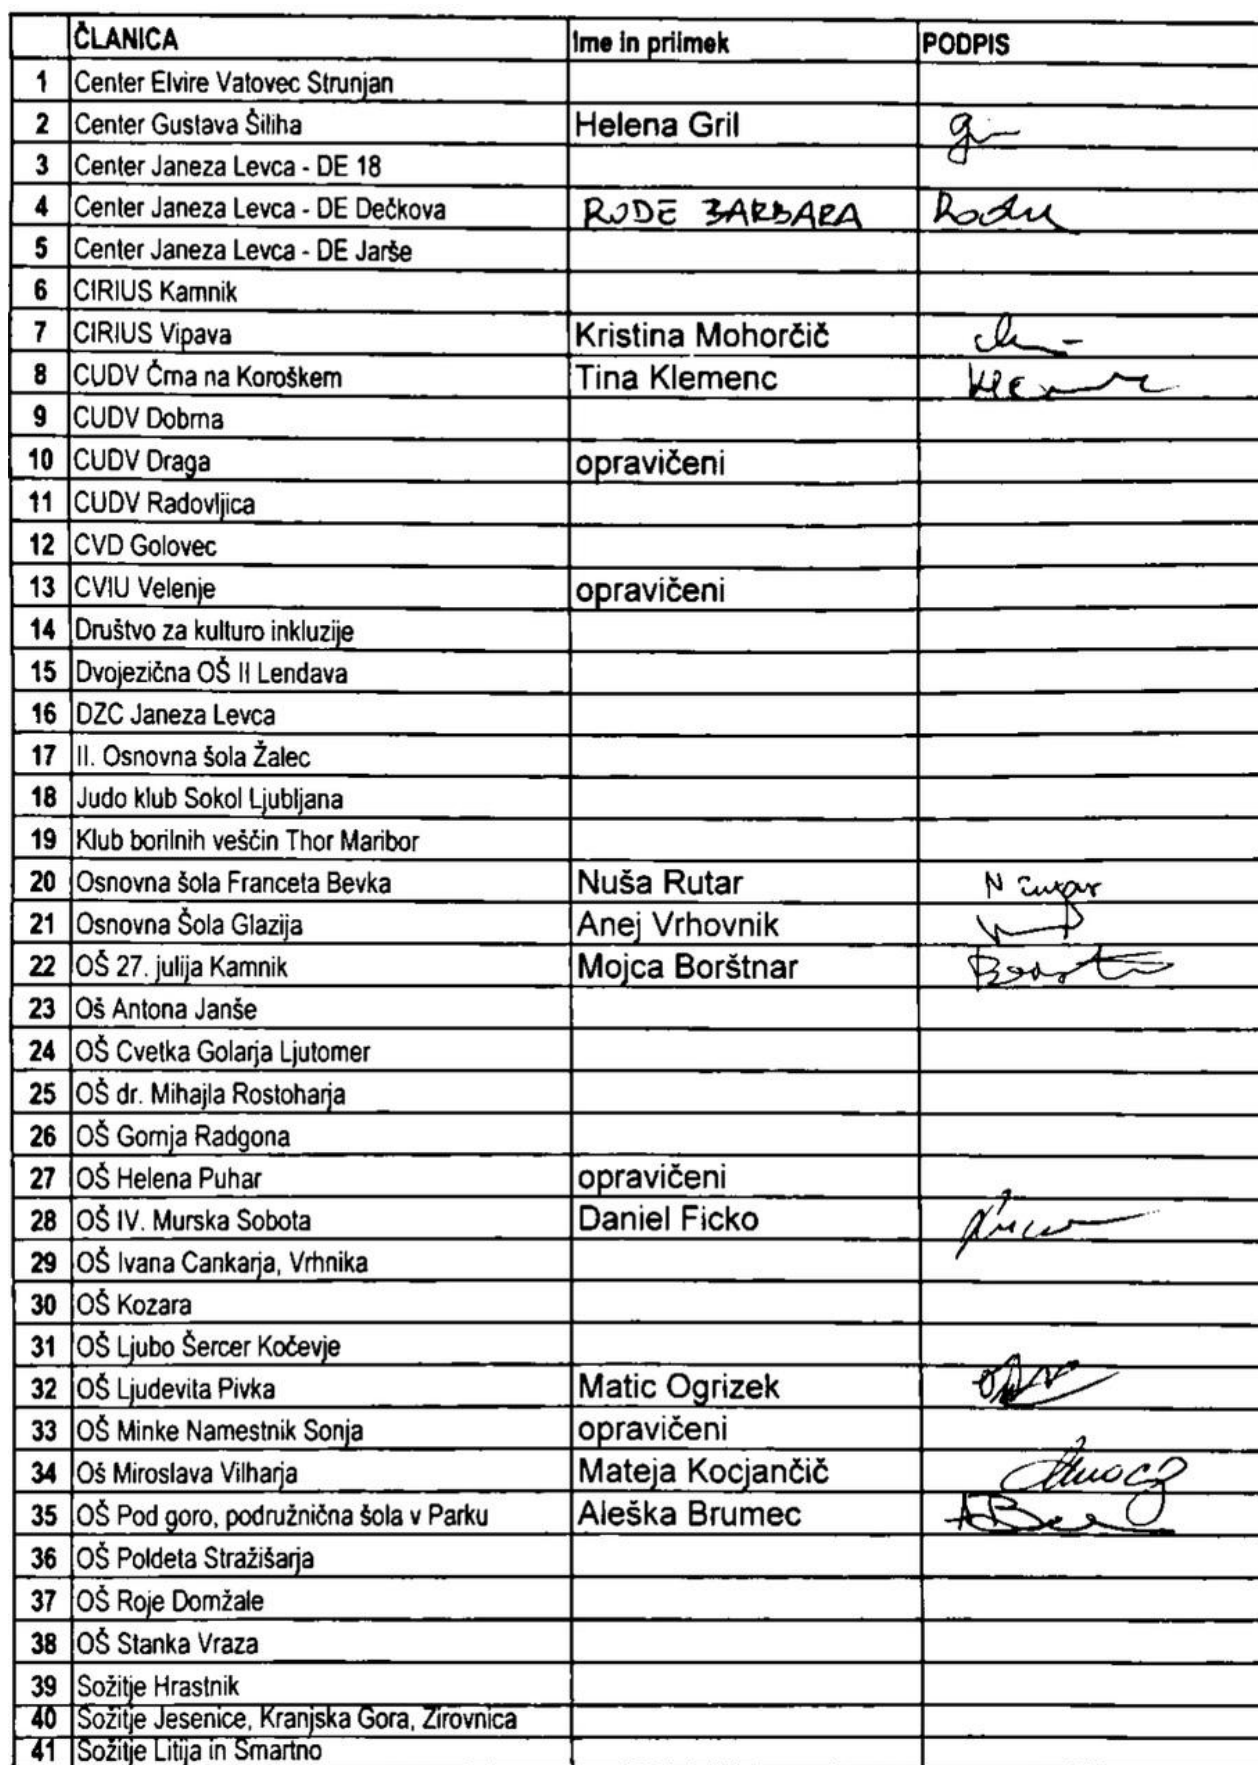 ČLANICA Ime in priimek PODPIS
1 Center Elvire Vatovec Strunjan
2 Center Gustava Šiliha Helena Gril
3 Center Janeza Levca - DE 18
4 Center Janeza Levca - DE Dečkova RODE BARBARA
5 Center Janeza Levca - DE Jarše
6 CIRIUS Kamnik
7 CIRIUS Vipava Kristina Mohorčič
8 CUDV Črna na Koroškem Tina Klemenc
9 CUDV Dobrna
10 CUDV Draga opravičeni
11 CUDV Radovljica
12 CVD Golovec
13 CVIU Velenje opravičeni
14 Društvo za kulturo inkluzije
15 Dvojezična OŠ II Lendava
16 DZC Janeza Levca
17 II. Osnovna šola Žalec
18 Judo klub Sokol Ljubljana
19 Klub borilnih veščin Thor Maribor
20 Osnovna šola Franceta Bevka Nuša Rutar
21 Osnovna Šola Glazija Anej Vrhovnik
22 OŠ 27. julija Kamnik Mojca Borštnar
23 Oš Antona Janše
24 OŠ Cvetka Golarja Ljutomer
25 OŠ dr. Mihajla Rostoharja
26 OŠ Gornja Radgona
27 OŠ Helena Puhar opravičeni
28 OŠ IV. Murska Sobota Daniel Ficko
29 OŠ Ivana Cankarja, Vrhnika
30 OŠ Kozara
31 OŠ Ljubo Šercer Kočevje
32 OŠ Ljudevita Pivka Matic Ogrizek
33 OŠ Minke Namestnik Sonja opravičeni
34 Oš Miroslava Vilharja Mateja Kocjančič
35 OŠ Pod goro, podružnična šola v Parku Aleška Brumec
36 OŠ Poldeta Stražišarja
37 OŠ Roje Domžale
38 OŠ Stanka Vraza
39 Sožitje Hrastnik
40 Sožitje Jesenice, Kranjska Gora, Žirovnica
41 Sožitje Litija in Šmartno